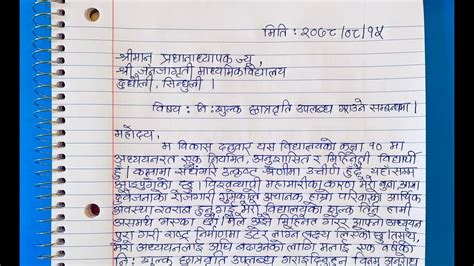 मिति : २०७८/०८/१५
श्रीमान् प्रधानाध्यापक ज्यू,
श्री जनजागृती माध्यमिक विद्यालय
दुधौली, सिन्धुली ।
विषय : नि:शुल्क छात्रवृति उपलब्ध गराउने सम्बन्धमा ।
महोदय,
म विकास दनुवार यस विद्यालयको कक्षा १० मा
अध्ययनरत एक नियमित, अनुशासित र मिहिनेती विद्यार्थी
हुँ । कक्षामा सधैंभरि उत्कृष्ट श्रेणीमा उत्तीर्ण हुँदै यहाँसम्म
आइपुगेको छु । विश्वव्यापी महामारीका कारण मेरो बुबा आमा
दुवैजनाको रोजगारी गुमेकाले अचानक हाम्रो परिवारको आर्थिक
अवस्था खराब हुन गई मेरो विद्यालयको शुल्क तिर्न हामी
असमर्थ भएका छौं । मैले अझै मिहिनेत गरेर आफ्नो अध्ययन
पूरा गरी राष्ट्र निर्माणमा टेवा पुर्‍याउने लक्ष्य लिएको छु । त्यसैले,
मेरो अध्ययनलाई अघि बढाउनको लागि मलाई एक वर्षको
नि:शुल्क छात्रवृति उपलब्ध गराइदिनुहुन विनम्र अनुरोध